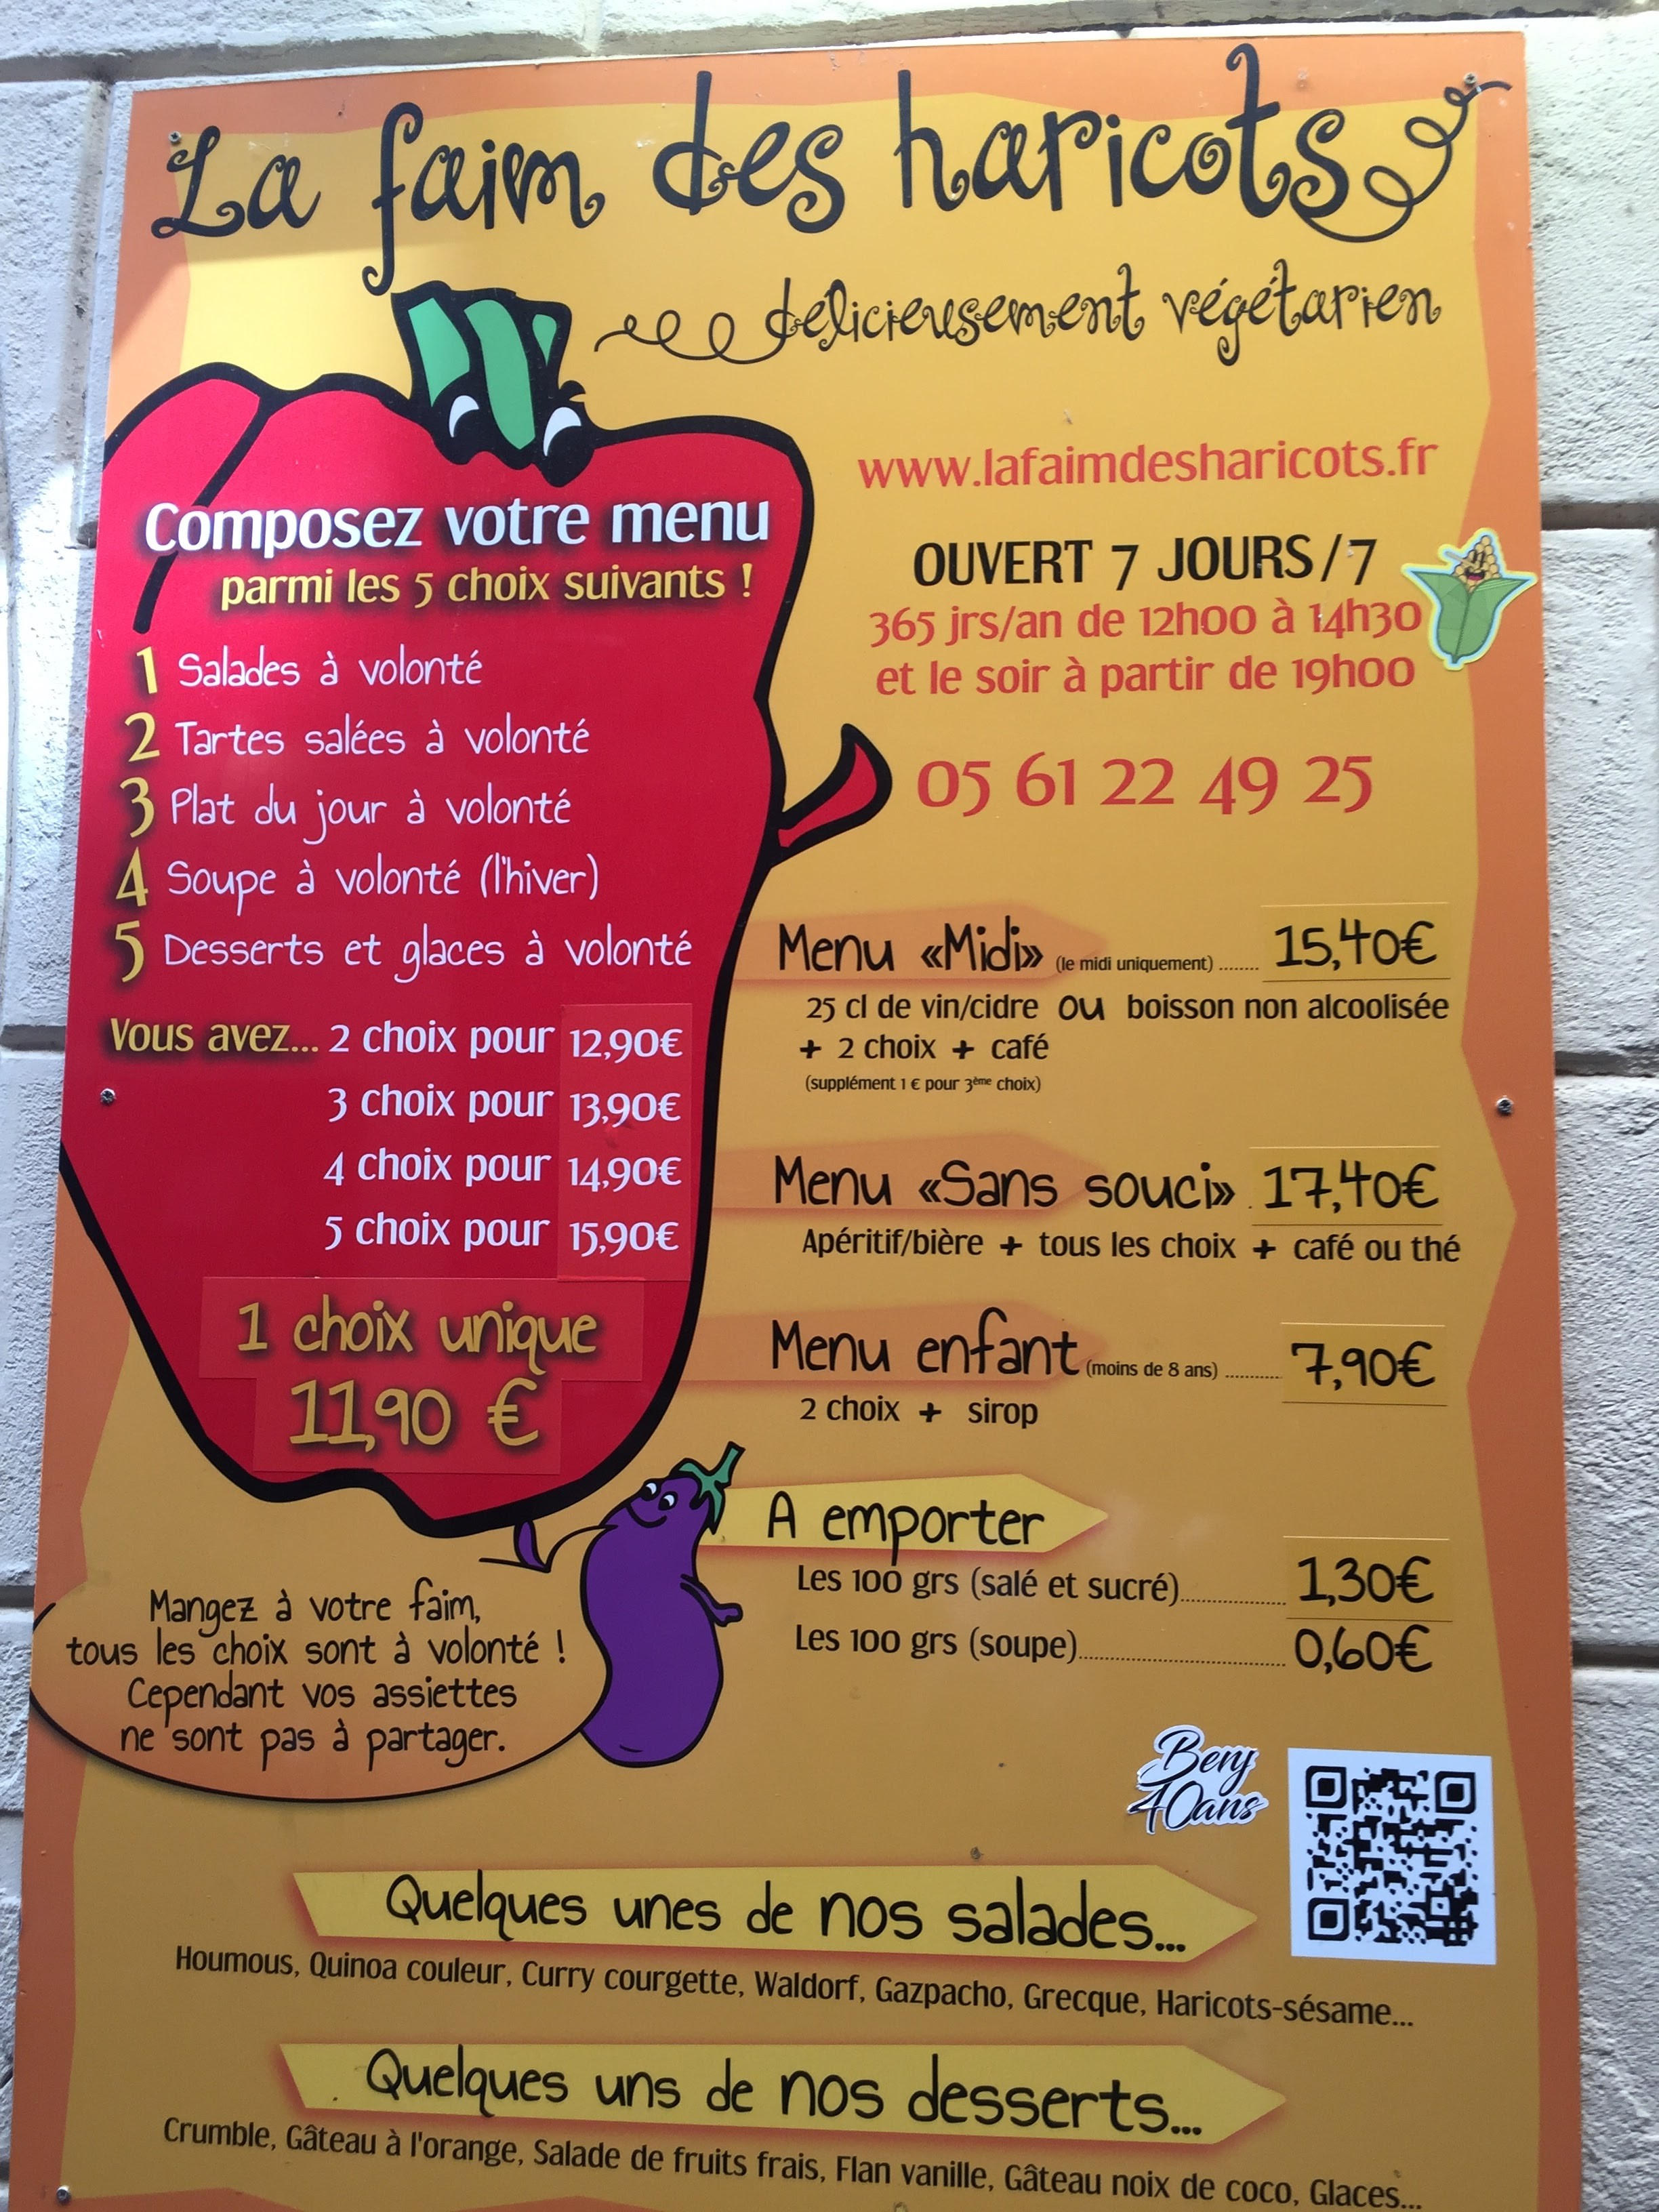 La faim des haricots
délicieusement végétarien
www.lafaimdesharicots.fr
OUVERT 7 JOURS/7
365 jrs/an de 12h00 à 14h30
et le soir à partir de 19h00
05 61 22 49 25
Composez votre menu
parmi les 5 choix suivants !
1 Salades à volonté
2 Tartes salées à volonté
3 Plat du jour à volonté
4 Soupe à volonté (l'hiver)
5 Desserts et glaces à volonté
Vous avez... 2 choix pour 12,90€
3 choix pour 13,90€
4 choix pour 14,90€
5 choix pour 15,90€
1 choix unique
11,90 €
Menu «Midi» (le midi uniquement) ........ 15,40€
25 cl de vin/cidre ou boisson non alcoolisée
+ 2 choix + café
(supplément 1 € pour 3ème choix)
Menu «Sans souci» . 17,40€
Apéritif/bière + tous les choix + café ou thé
Menu enfant (moins de 8 ans) ........... 7,90€
2 choix + sirop
A emporter
Les 100 grs (salé et sucré)................... 1,30€
Les 100 grs (soupe)..................................... 0,60€
Mangez à votre faim,
tous les choix sont à volonté !
Cependant vos assiettes
ne sont pas à partager.
Bery
40ans
Quelques unes de nos salades...
Houmous, Quinoa couleur, Curry courgette, Waldorf, Gazpacho, Grecque, Haricots-sésame...
Quelques uns de nos desserts...
Crumble, Gâteau à l'orange, Salade de fruits frais, Flan vanille, Gâteau noix de coco, Glaces...